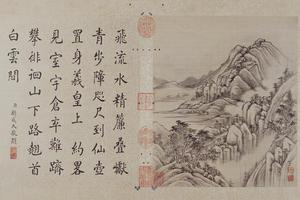 飛流水精簾疊巘
青步障咫尺到仙壺
置身羲皇上約畧
見室宇倉卒難躋
攀徘徊山下路翹首
白雲間